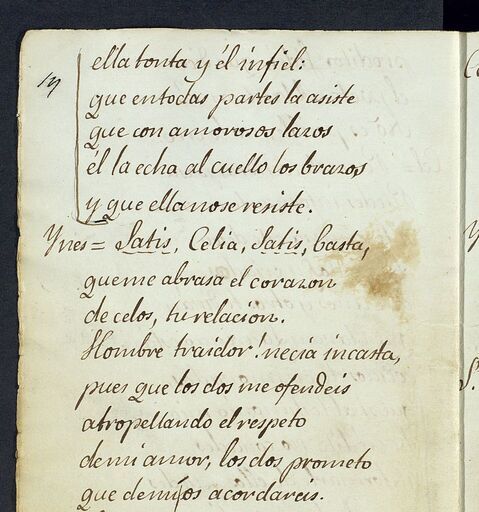 ella tonta y él infiel:
que en todas partes la asiste
que con amorosos lazos
él la echa al cuello los brazos
y que ella no se resiste.
Ynes = Satis, Celia, Satis, basta,
que me abrasa el corazon
de celos, tu relacion.
Hombre traidor! necia incasta,
pues que los dos me ofendeis
atropellando el respeto
de mi amor, los dos prometo
que de mi os acordareis.